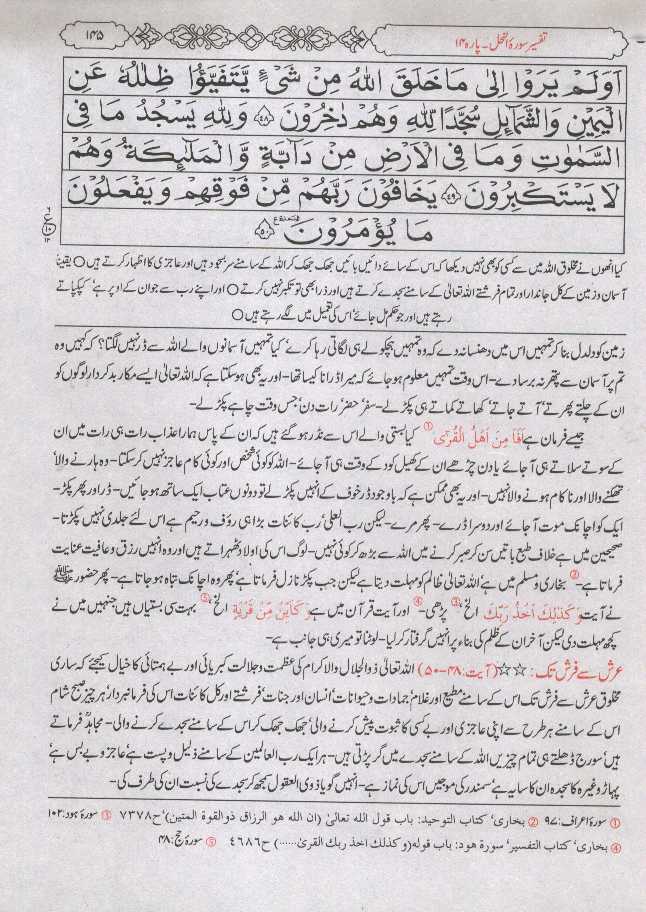 تفسیر سورۂ النحل۔ پارہ ۱۴
۱۴۵
اَوَلَمْ يَرَوْا اِلٰى مَا خَلَقَ اللّٰهُ مِنْ شَىْءٍ يَّتَفَيَّؤُا ظِلٰلُهٗ عَنِ
الْيَمِيْنِ وَالشَّمَآئِلِ سُجَّدًا لِّلّٰهِ وَهُمْ دٰخِرُوْنَ ﴿۴۸﴾ وَلِلّٰهِ يَسْجُدُ مَا فِى
السَّمٰوٰتِ وَمَا فِى الْاَرْضِ مِنْ دَآبَّةٍ وَّالْمَلٰٓئِكَةُ وَهُمْ
لَا يَسْتَكْبِرُوْنَ ﴿۴۹﴾ يَخَافُوْنَ رَبَّهُمْ مِّنْ فَوْقِهِمْ وَيَفْعَلُوْنَ
مَا يُؤْمَرُوْنَ ﴿۵۰﴾
کیا انھوں نے مخلوق اللہ میں سے کسی کو بھی نہیں دیکھا کہ اس کے سائے دائیں بائیں جھک جھک کر اللہ کے سامنے سربسجود ہیں اور عاجزی کا اظہار کرتے ہیں ○ یقیناً
آسمان وزمین کے کل جاندار اور تمام فرشتے اللہ تعالیٰ کے سامنے سجدے کرتے ہیں اور ذرا بھی تو تکبر نہیں کرتے ○ اور اپنے رب سے جو ان کے اوپر ہے، کپکپاتے
رہتے ہیں اور جو حکم مل جائے، اس کی تعمیل میں لگے رہتے ہیں ○
زمین کو دلدل بنا کر تمہیں اس میں دھنسا نہ دے کہ وہ تمہیں ہچکولے ہی لگاتی رہا کرے، کیا تمہیں آسمانوں والے اللہ سے ڈر نہیں لگتا؟ کہ کہیں وہ
تم پر آسمان سے پتھر نہ برسا دے۔ اس وقت تمہیں معلوم ہو جائے کہ میرا ڈرانا کیسا تھا۔ اور یہ بھی ہو سکتا ہے کہ اللہ تعالیٰ ایسے مکار بدکردار لوگوں کو
ان کے چلتے پھرتے، آتے جاتے، کھاتے کماتے ہی پکڑ لے۔ سفر، حضر، رات دن، جس وقت چاہے پکڑ لے۔
جیسے فرمان ہے اَفَاَمِنَ اَهْلُ الْقُرٰٓى ① کیا بستی والے اس سے نڈر ہو گئے ہیں کہ ان کے پاس ہمارا عذاب رات ہی رات میں ان
کے سوتے سلاتے ہی آ جائے یا دن چڑھے ان کے کھیل کود کے وقت ہی آ جائے۔ اللہ کو کوئی شخص اور کوئی کام عاجز نہیں کر سکتا۔ وہ ہارنے والا،
تھکنے والا اور ناکام ہونے والا نہیں۔ اور یہ بھی ممکن ہے کہ باوجود ڈر خوف کے انہیں پکڑ لے تو دونوں عتاب ایک ساتھ ہو جائیں۔ ڈر اور پھر پکڑ۔
ایک کو اچانک موت آ جائے اور دوسرا ڈرے۔ پھر مرے۔ لیکن رب العلیٰ، رب کائنات بڑا ہی رؤف و رحیم ہے اس لئے جلدی نہیں پکڑتا۔
صحیحین میں ہے خلاف طبع باتیں سن کر صبر کرنے میں اللہ سے بڑھ کر کوئی نہیں۔ لوگ اس کی اولاد ٹھہراتے ہیں اور وہ انہیں رزق و عافیت عنایت
فرماتا ہے۔ ② بخاری و مسلم میں ہے اللہ تعالیٰ ظالم کو مہلت دیتا ہے لیکن جب پکڑ نازل فرماتا ہے، پھر وہ اچانک تباہ ہو جاتا ہے۔ پھر حضور ﷺ
نے آیت وَكَذٰلِكَ اَخْذُ رَبِّكَ الخ، ③ پڑھی۔ ④ اور آیت قرآن میں ہے وَكَاَيِّنْ مِّنْ قَرْيَةٍ الخ، ⑤ بہت سی بستیاں ہیں جنہیں میں نے
کچھ مہلت دی لیکن آخر ان کے ظلم کی بناء پر انہیں گرفتار کر لیا۔ لوٹنا تو میری ہی جانب ہے۔
عرش سے فرش تک: ☆☆ (آیت: ۴۸۔۵۰) اللہ تعالیٰ ذوالجلال والاکرام کی عظمت و جلالت کبریائی اور بے ہمتائی کا خیال کیجئے کہ ساری
مخلوق عرش سے فرش تک اس کے سامنے مطیع اور غلام، جمادات و حیوانات، انسان اور جنات، فرشتے اور کل کائنات اس کی فرمانبردار، ہر چیز صبح شام
اس کے سامنے ہر طرح سے اپنی عاجزی اور بے کسی کا ثبوت پیش کرنے والی، جھک جھک کر اس کے سامنے سجدے کرنے والی۔ مجاہدؒ فرماتے
ہیں، سورج ڈھلتے ہی تمام چیزیں اللہ کے سامنے سجدے میں گر پڑتی ہیں۔ ہر ایک رب العالمین کے سامنے ذلیل و پست ہے، عاجز و بے بس ہے،
پہاڑ وغیرہ کا سجدہ ان کا سایہ ہے، سمندر کی موجیں اس کی نماز ہے۔ انہیں گویا ذوی العقول سمجھ کر سجدے کی نسبت ان کی طرف کی۔
① سورۂ اعراف: ۹۷ ② بخاری، کتاب التوحید: باب قول الله تعالیٰ (ان الله هو الرزاق ذوالقوة المتین)، ح ۷۳۷۸ ③ سورۂ ہود: ۱۰۲
④ بخاری، کتاب التفسیر، سورة هود: باب قوله (وكذلك اخذ ربك القرىٰ......) ح ۴۶۸۶ ⑤ سورۂ حج: ۴۸